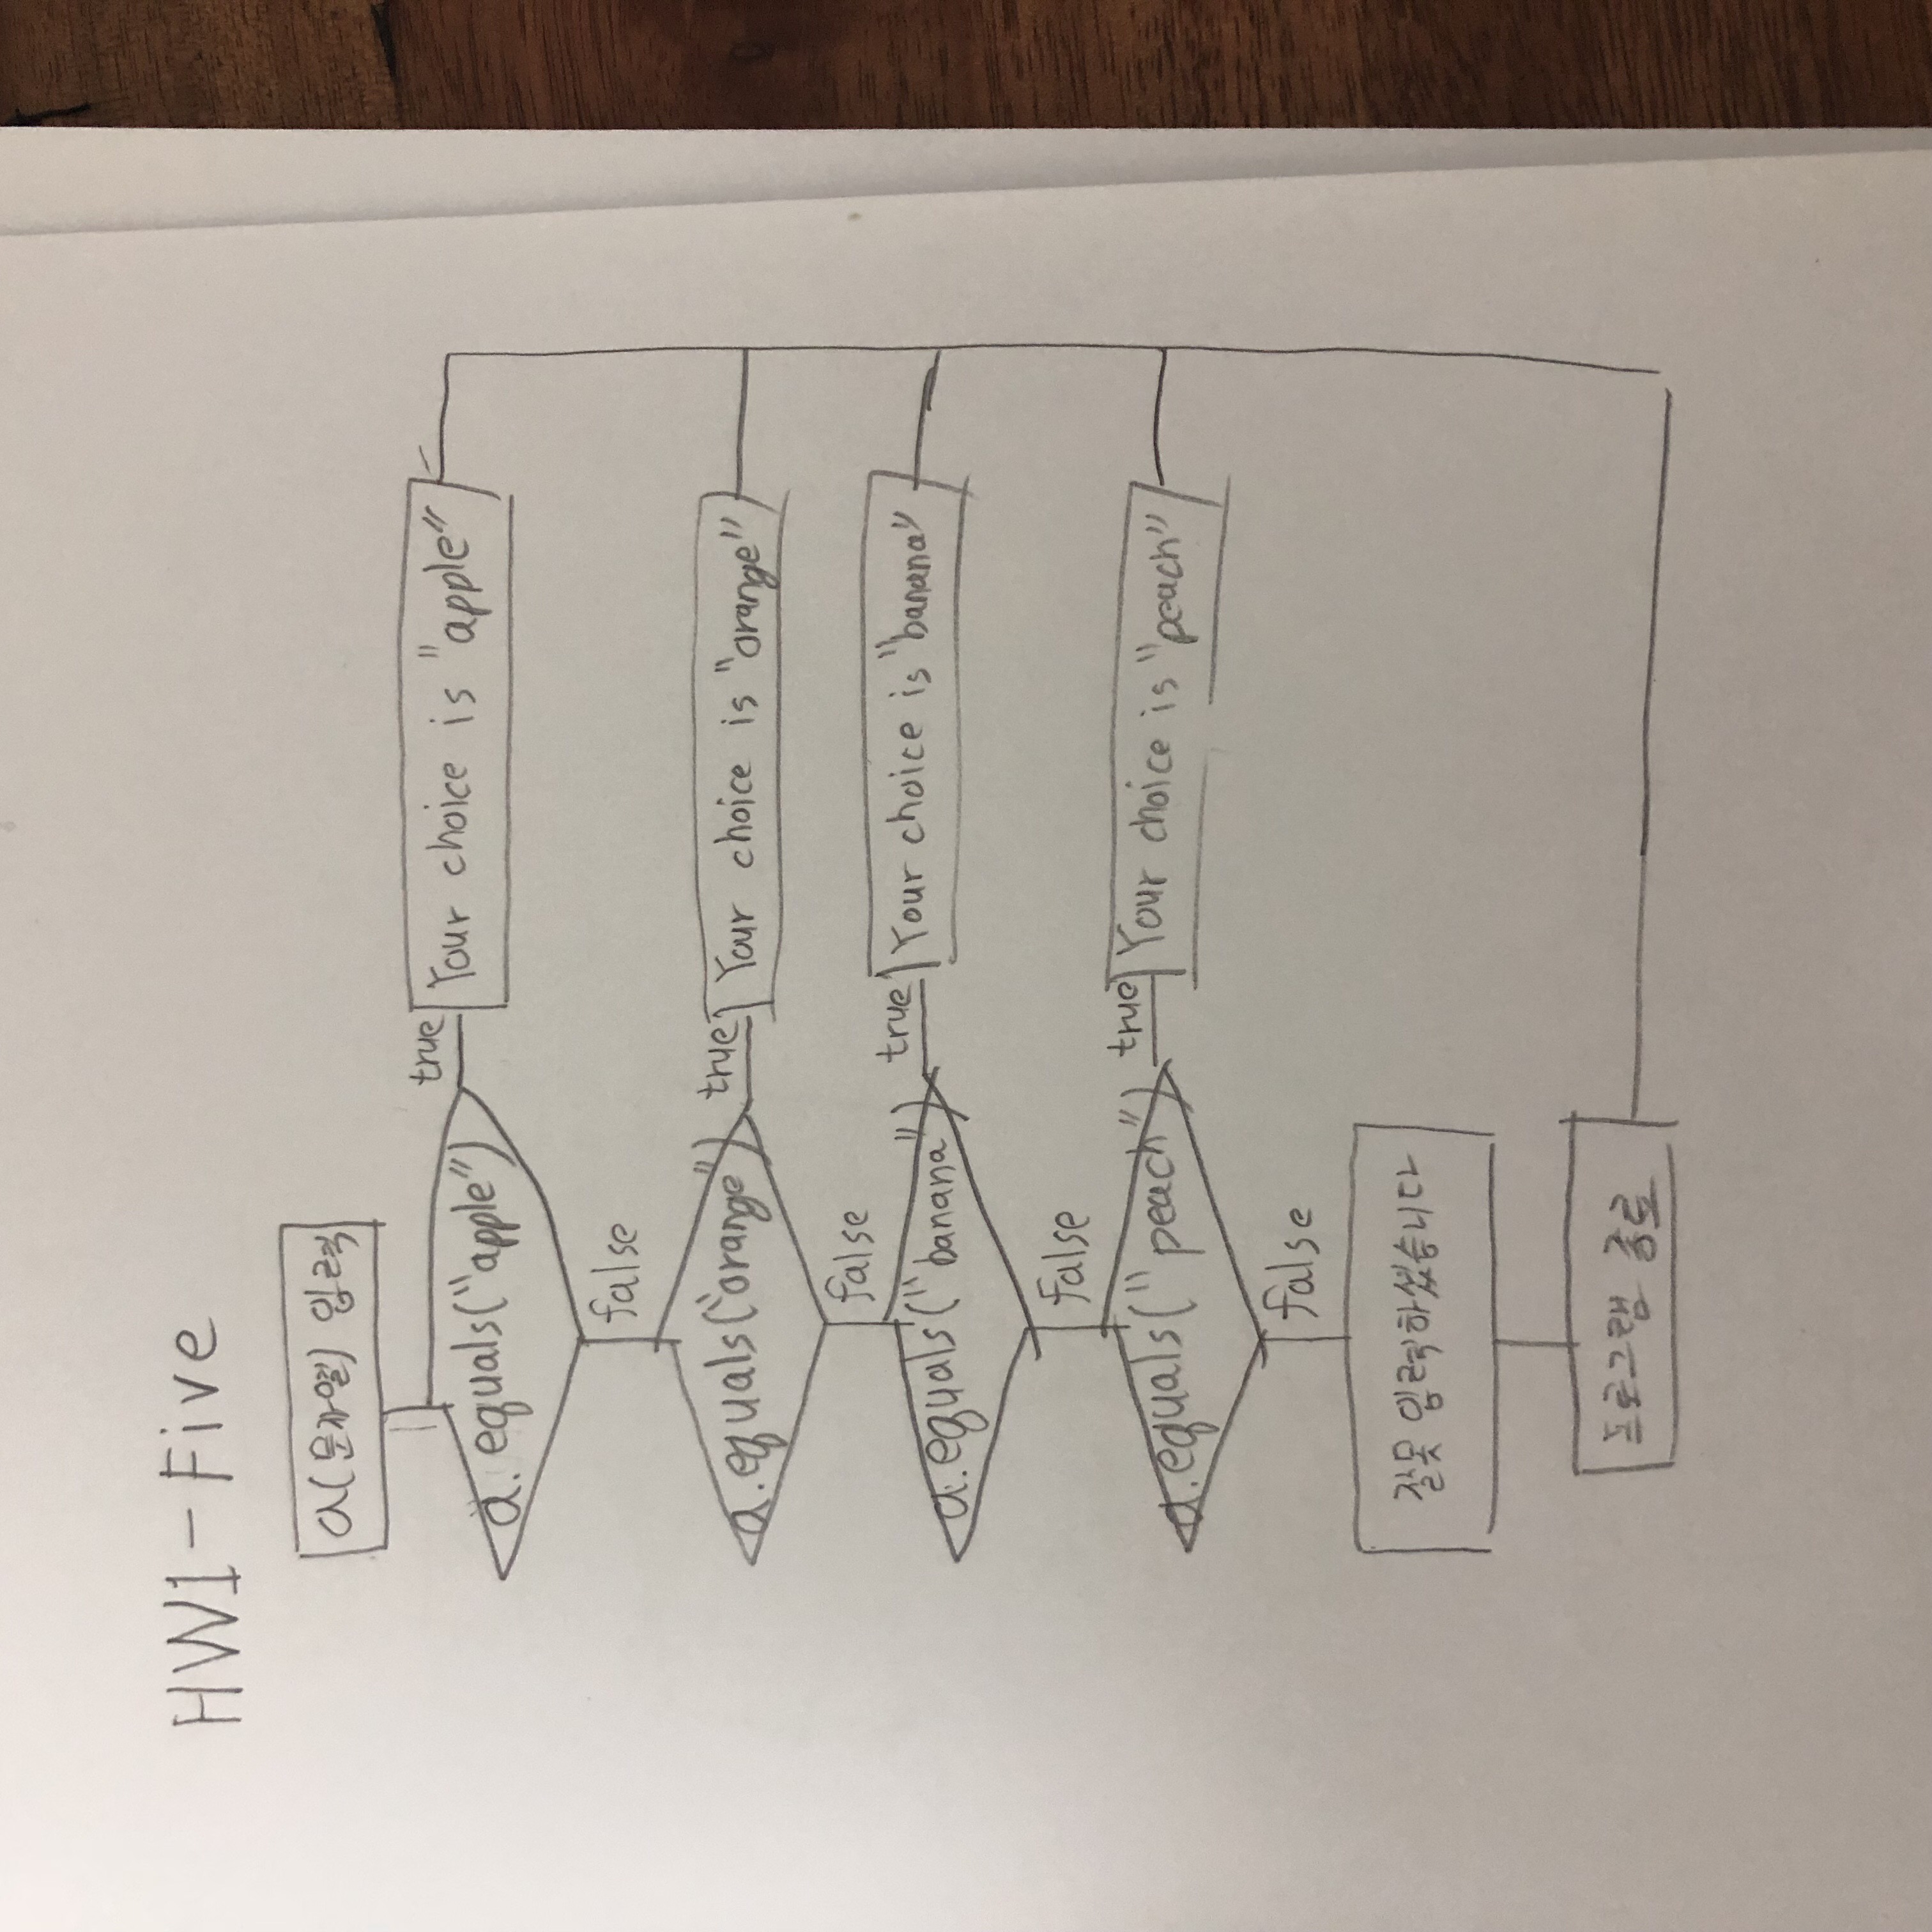 HW1-Five
a(문자열) 입력
a.equals("apple")
true
Your choice is "apple"
false
a.equals("orange")
true
Your choice is "orange"
false
a.equals("banana")
true
Your choice is "banana"
false
a.equals("peach")
true
Your choice is "peach"
false
잘못 입력하셨습니다
프로그램 종료